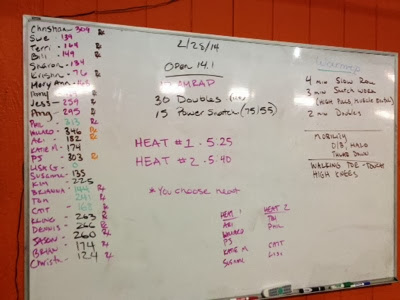 Christian 309 Rx
Sue 139
Terri - 164 Rx
Bill - 149
Sharon - 134
Kristin - 76 Rx
Mary Ann
Jess - 259 Rx
Ang - 295 Rx
Phil 313 Rx
Willard - 346 Rx
Ari - 182 Rx
Katie M - 174
PJ - 303 Rx
Lisa G - 0
Susanne - 135
Kim 225
Brianna - 144 Rx
Tim 241 Rx
Cait - 162 Rx
263 Rx
Dennis - 266 Rx
Jason - 260 Rx
Brian 174 Rx
Christa - 124 Rx
2/28/14
Open 14.1
AMRAP
30 Doubles
15 Power Snatch (75/55)
HEAT #1 - 5:25
HEAT #2 - 5:40
*You choose heat
HEAT 1
Ari
Willard
PJ
Katie M
Susanne
HEAT 2
Tim
Phil
Cait
Lisa
Warmup
4 min Slow Row
3 min Snatch Work
(High Pulls, Muscle,
2 min Doubles
Mobility
HALO
WALKING TOE-TOUCH
HIGH KNEES